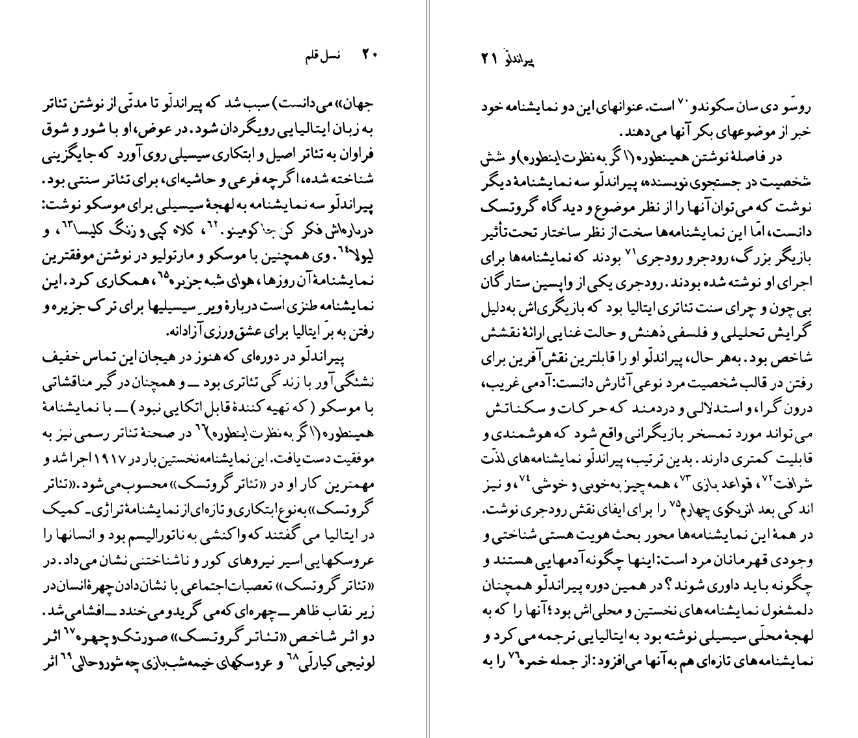 ۲۰ نسل قلم
جهان» می‌دانست) سبب شد که پیراندلّو تا مدتّی از نوشتن تئاتر
به زبان ایتالیایی رویگردان شود. در عوض، او با شور و شوق
فراوان به تئاتر اصیل و ابتکاری سیسیلی روی آورد که جایگزینی
شناخته شده، اگرچه فرعی و حاشیه‌ای، برای تئاتر سنتی بود.
پیراندلّو سه نمایشنامه به لهجهٔ سیسیلی برای موسکو نوشت:
درباره‌اش فکر کن جاکومینو.۶۲، کلاه کپی و زنگ کلیسا۶۳، و
لیولا۶۴. وی همچنین با موسکو و مارتولیو در نوشتن موفقترین
نمایشنامهٔ آن روزها، هوای شبه جزیره۶۵، همکاری کرد. این
نمایشنامه طنزی است دربارهٔ ویر سیسیلیها برای ترک جزیره و
رفتن به برّ ایتالیا برای عشق‌ورزی آزادانه.
پیراندلّو در دوره‌ای که هنوز در هیجان این تماس خفیف
نشئگی‌آور با زندگی تئاتری بود ــ و همچنان درگیر مناقشاتی
با موسکو (که تهیه کنندهٔ قابل اتکایی نبود) ــ با نمایشنامهٔ
همینطوره (اگر به نظرت اینطوره)۶۶ در صحنهٔ تئاتر رسمی نیز به
موفقیت دست یافت. این نمایشنامه نخستین بار در ۱۹۱۷ اجرا شد و
مهمترین کار او در «تئاتر گروتسک» محسوب می‌شود. «تئاتر
گروتسک» به نوع ابتکاری و تازه‌ای از نمایشنامهٔ تراژی‌ـ کمیک
در ایتالیا می گفتند که واکنشی به ناتورالیسم بود و انسانها را
عروسکهایی اسیر نیروهای کور و ناشناختنی نشان می‌داد. در
«تئاتر گروتسک» تعصبات اجتماعی با نشان دادن چهرهٔ انسان در
زیر نقاب ظاهر ــ چهره‌ای که می گرید و می خندد ــ افشا می‌شد.
دو اثر شاخص «تئاتر گروتسک» صورتک و چهره۶۷ اثر
لوئیجی کیارلّی۶۸ و عروسکهای خیمه شب‌بازی چه شور و حالی۶۹ اثر
پیراندلّو ۲۱
روسّو دی سان سکوندو۷۰ است. عنوانهای این دو نمایشنامه خود
خبر از موضوعهای بکر آنها می‌دهند.
در فاصلهٔ نوشتن همینطوره (اگر به نظرت اینطوره) و شش
شخصیت در جستجوی نویسنده، پیراندلّو سه نمایشنامهٔ دیگر
نوشت که می‌توان آنها را از نظر موضوع و دیدگاه گروتسک
دانست، امّا این نمایشنامه‌ها سخت از نظر ساختار تحت‌تأثیر
بازیگر بزرگ، رودجرو رودجری۷۱ بودند که نمایشنامه‌ها برای
اجرای او نوشته شده بودند. رودجری یکی از واپسین ستارگان
بی‌چون و چرای سنت تئاتری ایتالیا بود که بازیگری‌اش به‌دلیل
گرایش تحلیلی و فلسفی ذهنش و حالت غنایی ارائهٔ نقشش
شاخص بود. به‌هر حال، پیراندلّو او را قابلترین نقش‌آفرین برای
رفتن در قالب شخصیت مرد نوعی آثارش دانست: آدمی غریب،
درون گرا، و استدلالی و دردمند که حرکات و سکناتش
می تواند مورد تمسخر بازیگرانی واقع شود که هوشمندی و
قابلیت کمتری دارند. بدین ترتیب، پیراندلّو نمایشنامه‌های لذّت
شرافت۷۲، قواعد بازی۷۳، همه چیز به‌خوبی و خوشی۷۴، و نیز
اندکی بعد انریکوی چهارم۷۵ را برای ایفای نقش رودجری نوشت.
در همهٔ این نمایشنامه‌ها محور بحث هویت هستی شناختی و
وجودی قهرمانان مرد است: اینها چگونه آدمهایی هستند و
چگونه باید داوری شوند؟ در همین دوره پیراندلّو همچنان
دلمشغول نمایشنامه‌های نخستین و محلی‌اش بود؛ آنها را که به
لهجهٔ محلّی سیسیلی نوشته بود به ایتالیایی ترجمه می کرد و
نمایشنامه‌های تازه‌ای هم به آنها می‌افزود: از جمله خمره۷۶ را به